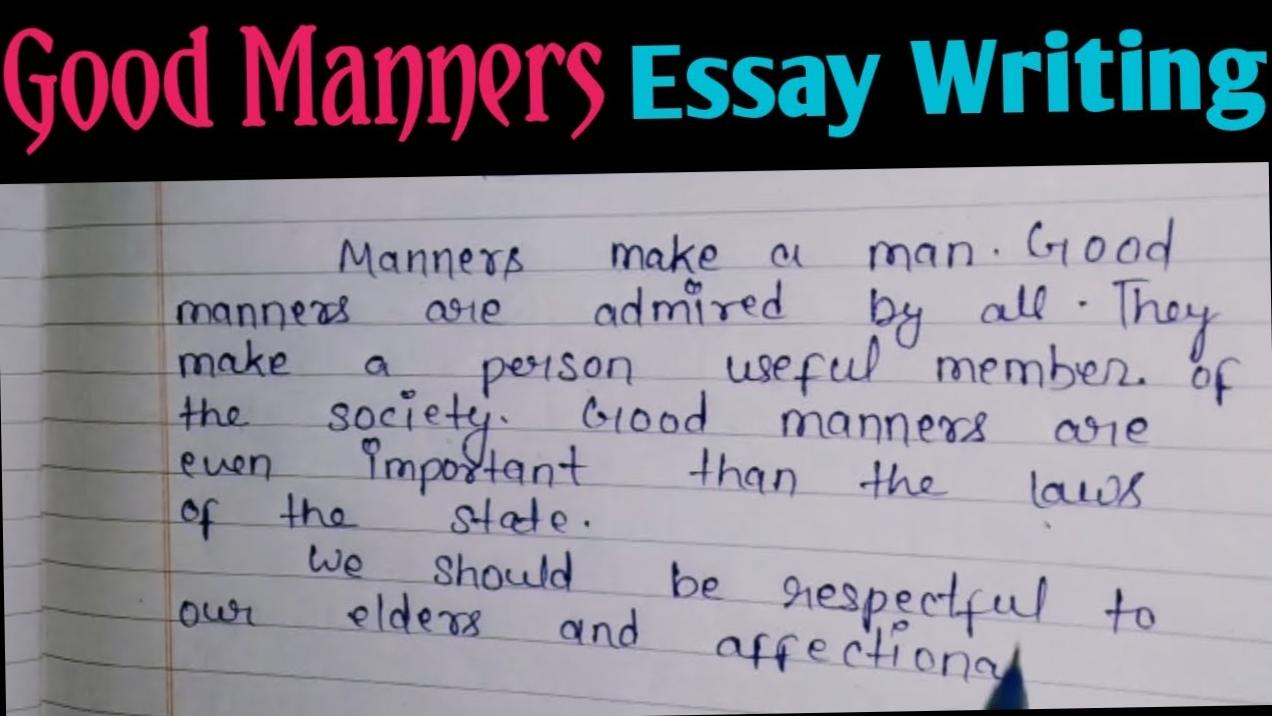 Good Manners Essay Writing
Manners make a man. Good
manners are admired by all. They
make a person useful member of
the society. Good manners are
even important than the laws
of the state.
We should be respectful to
our elders and affectiona